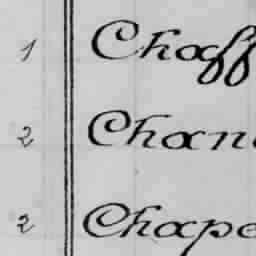 1 Chaff
2 Chan
2 Chape